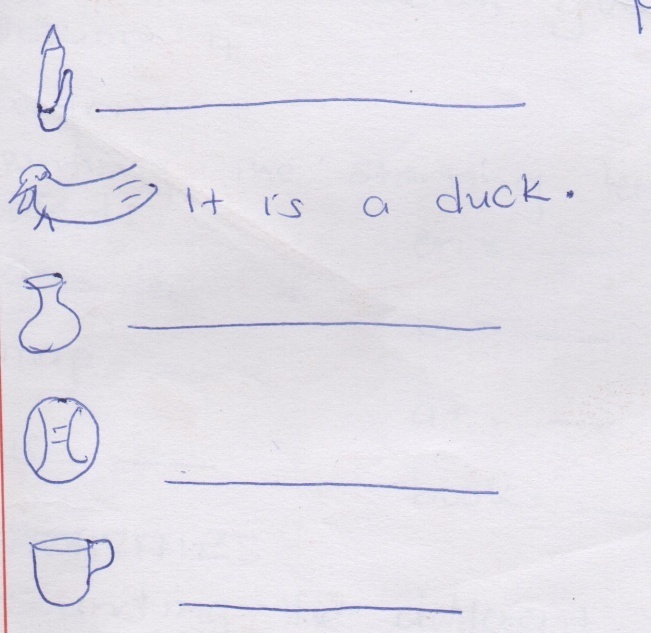 It is a duck.